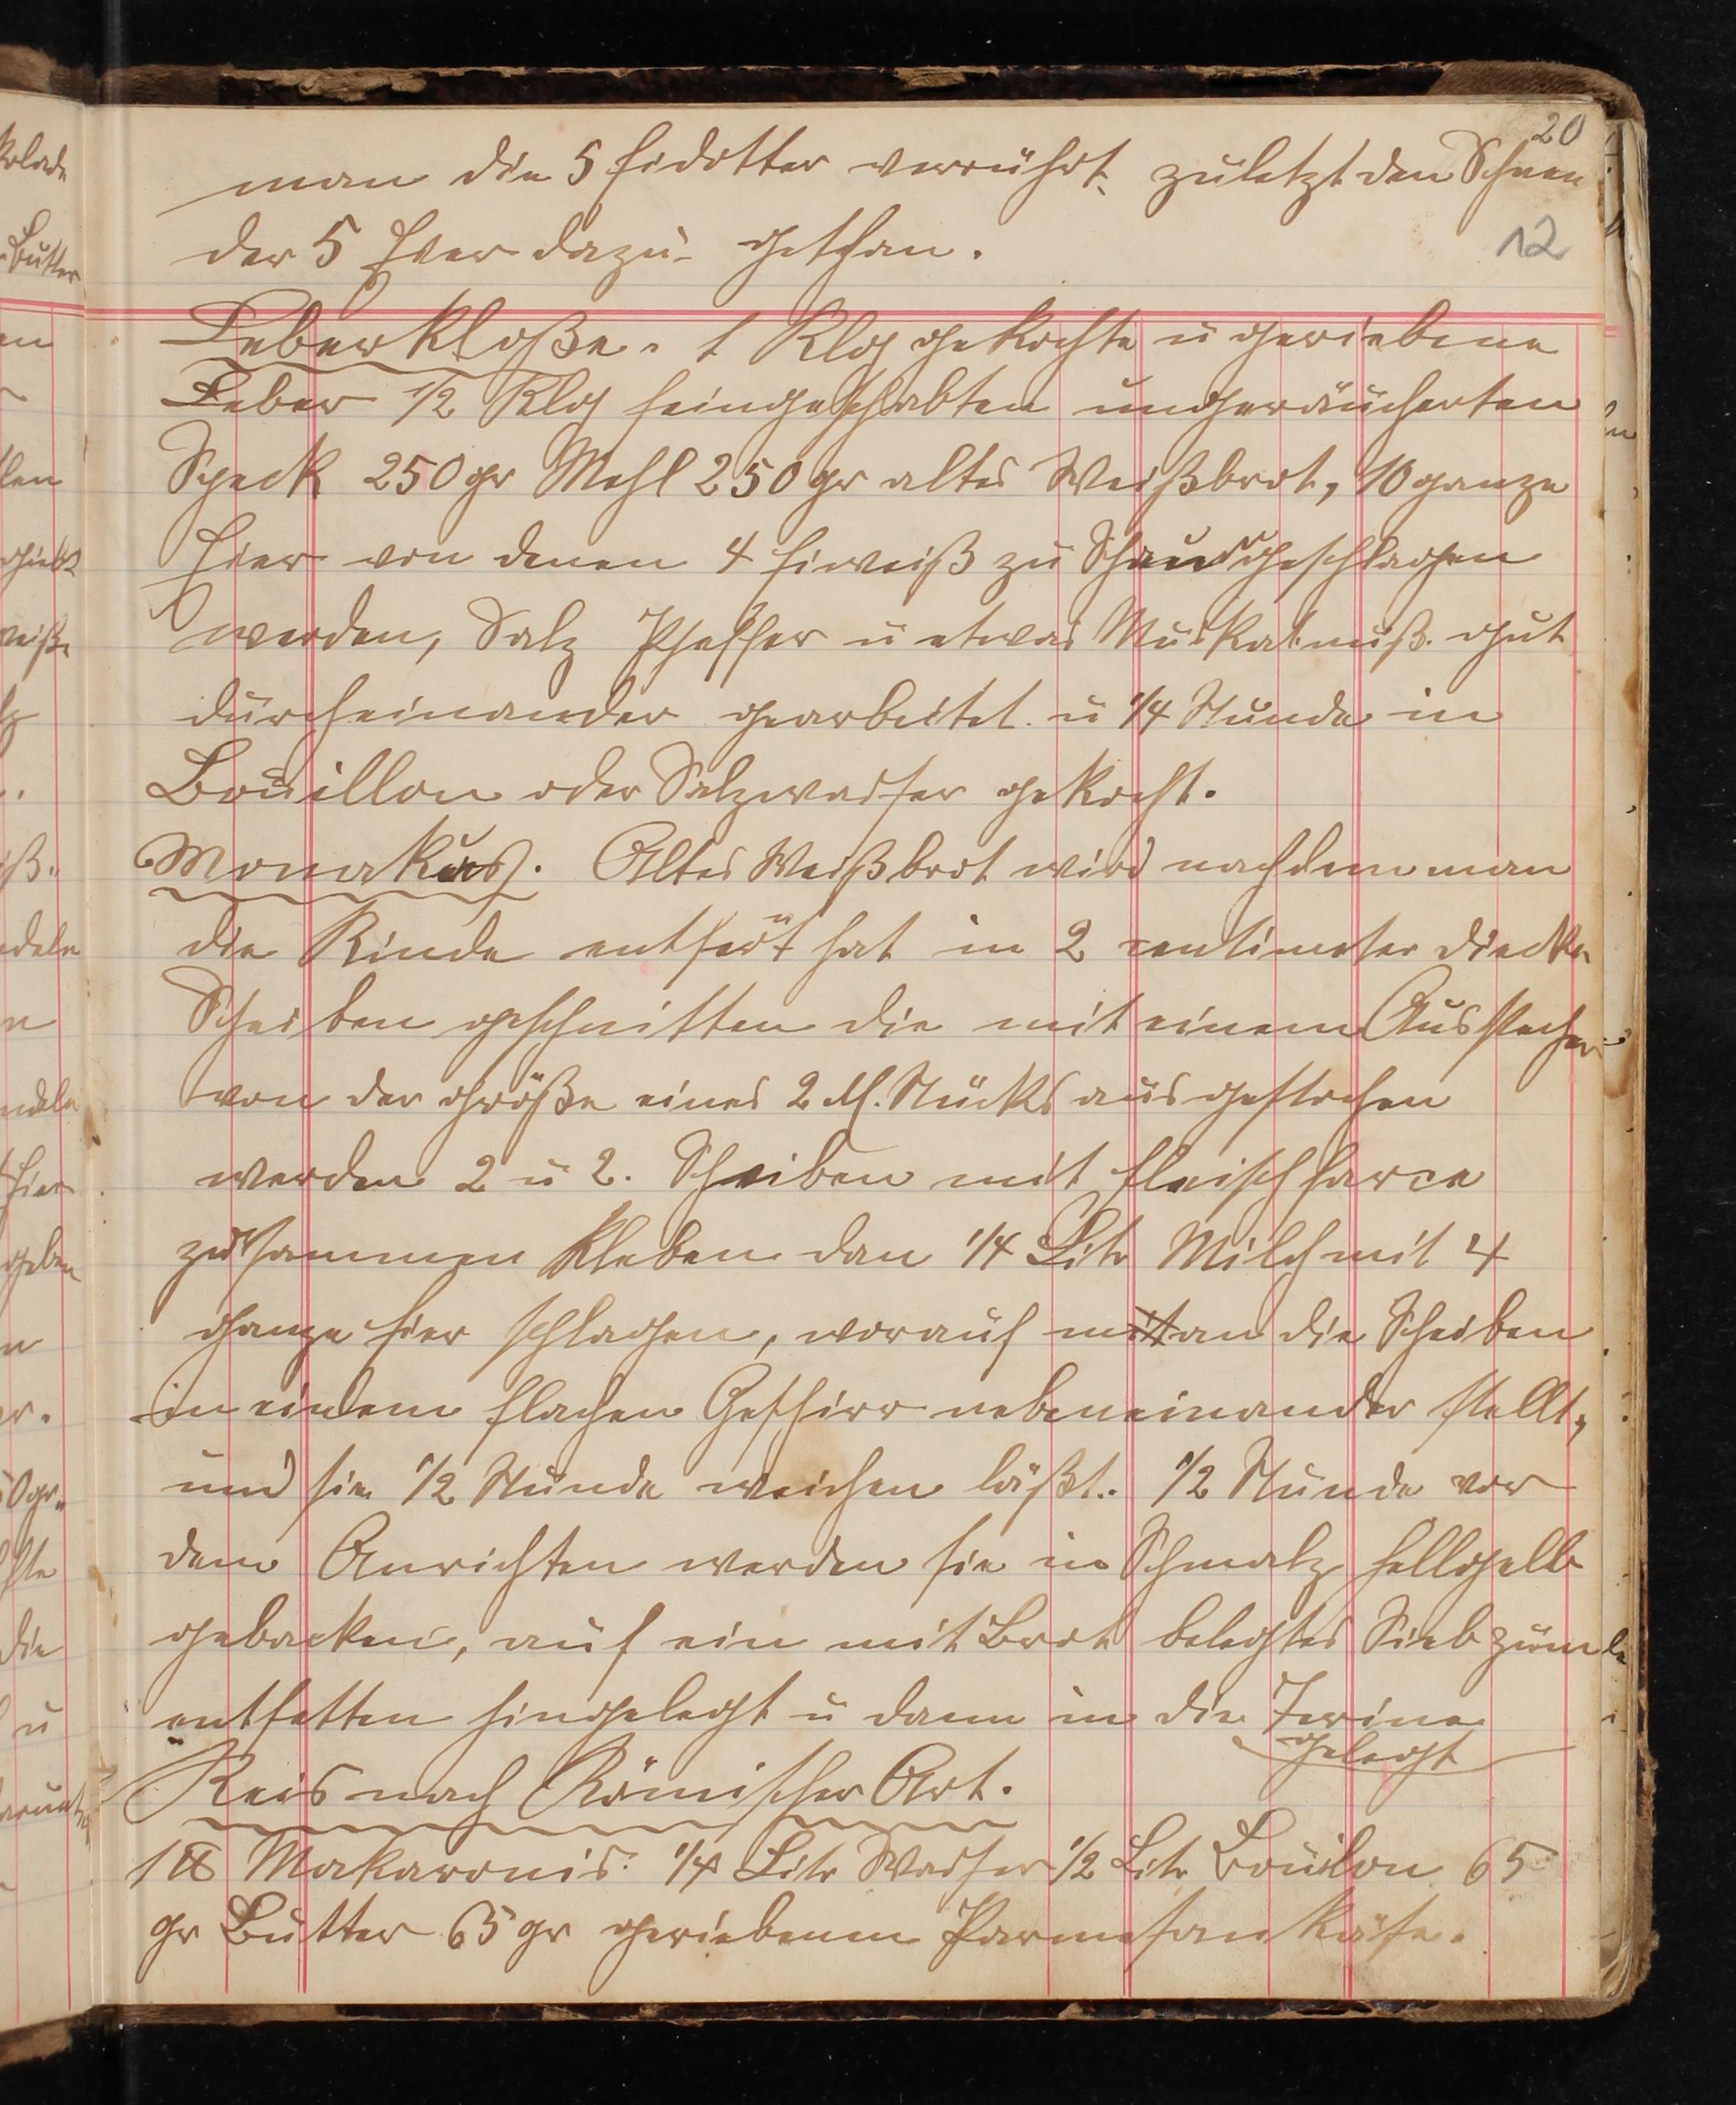 20
man die 5 Eidotter verrührt, zuletzt den Schnee
der 5 Eier dazu gethan.
12
Leberkloße. 1 Klg gekochte u geriebene
Leber 1/2 Klg feingeschabten ungeräucherten
Speck 250 gr Mehl 250 gr altes Weißbrot, 10 ganze
Eier von denen 4 Eiweiß zu Schaum geschlagen
werden, Salz Pfeffer u etwas Muskatnuß. gut
durcheinander gearbeitet u 1/4 Stunde in
Bouillon oder Salzwasser gekocht.
Monakus. Altes Weißbrot wird nachdem man
die Rinde entfernt hat in 2 centimeter diecke
Scheiben geschnitten die mit einem Ausstecher
von der größe eines 2 M. Stücks ausgestochen
werden 2 u 2. Scheiben mit fleischfarce
zusammen kleben dan 1/4 Litr Milch mit 4
ganze Eier schlagen, worauf man die Scheiben
in einem flachen Geschirr nebeneinander stellt,
und sie 1/2 Stunde weichen läßt. 1/2 Stunde vor
dem Anrichten werden sie in Schmalz hellgelb
gebacken, auf ein mit Brot belegtes Sieb zum
entfetten hingelegt u dann in die Terine
gelegt
Reis nach Römischer Art.
1 ℔ Makaronis. 1/4 Litr Wasser 1/2 Litr Bouilon 65
gr Butter 65 gr geriebenen Parmesankäse.